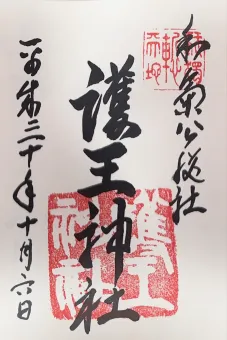 和氣公綜社
護王神社
護王
神社
平成三十年十月六日